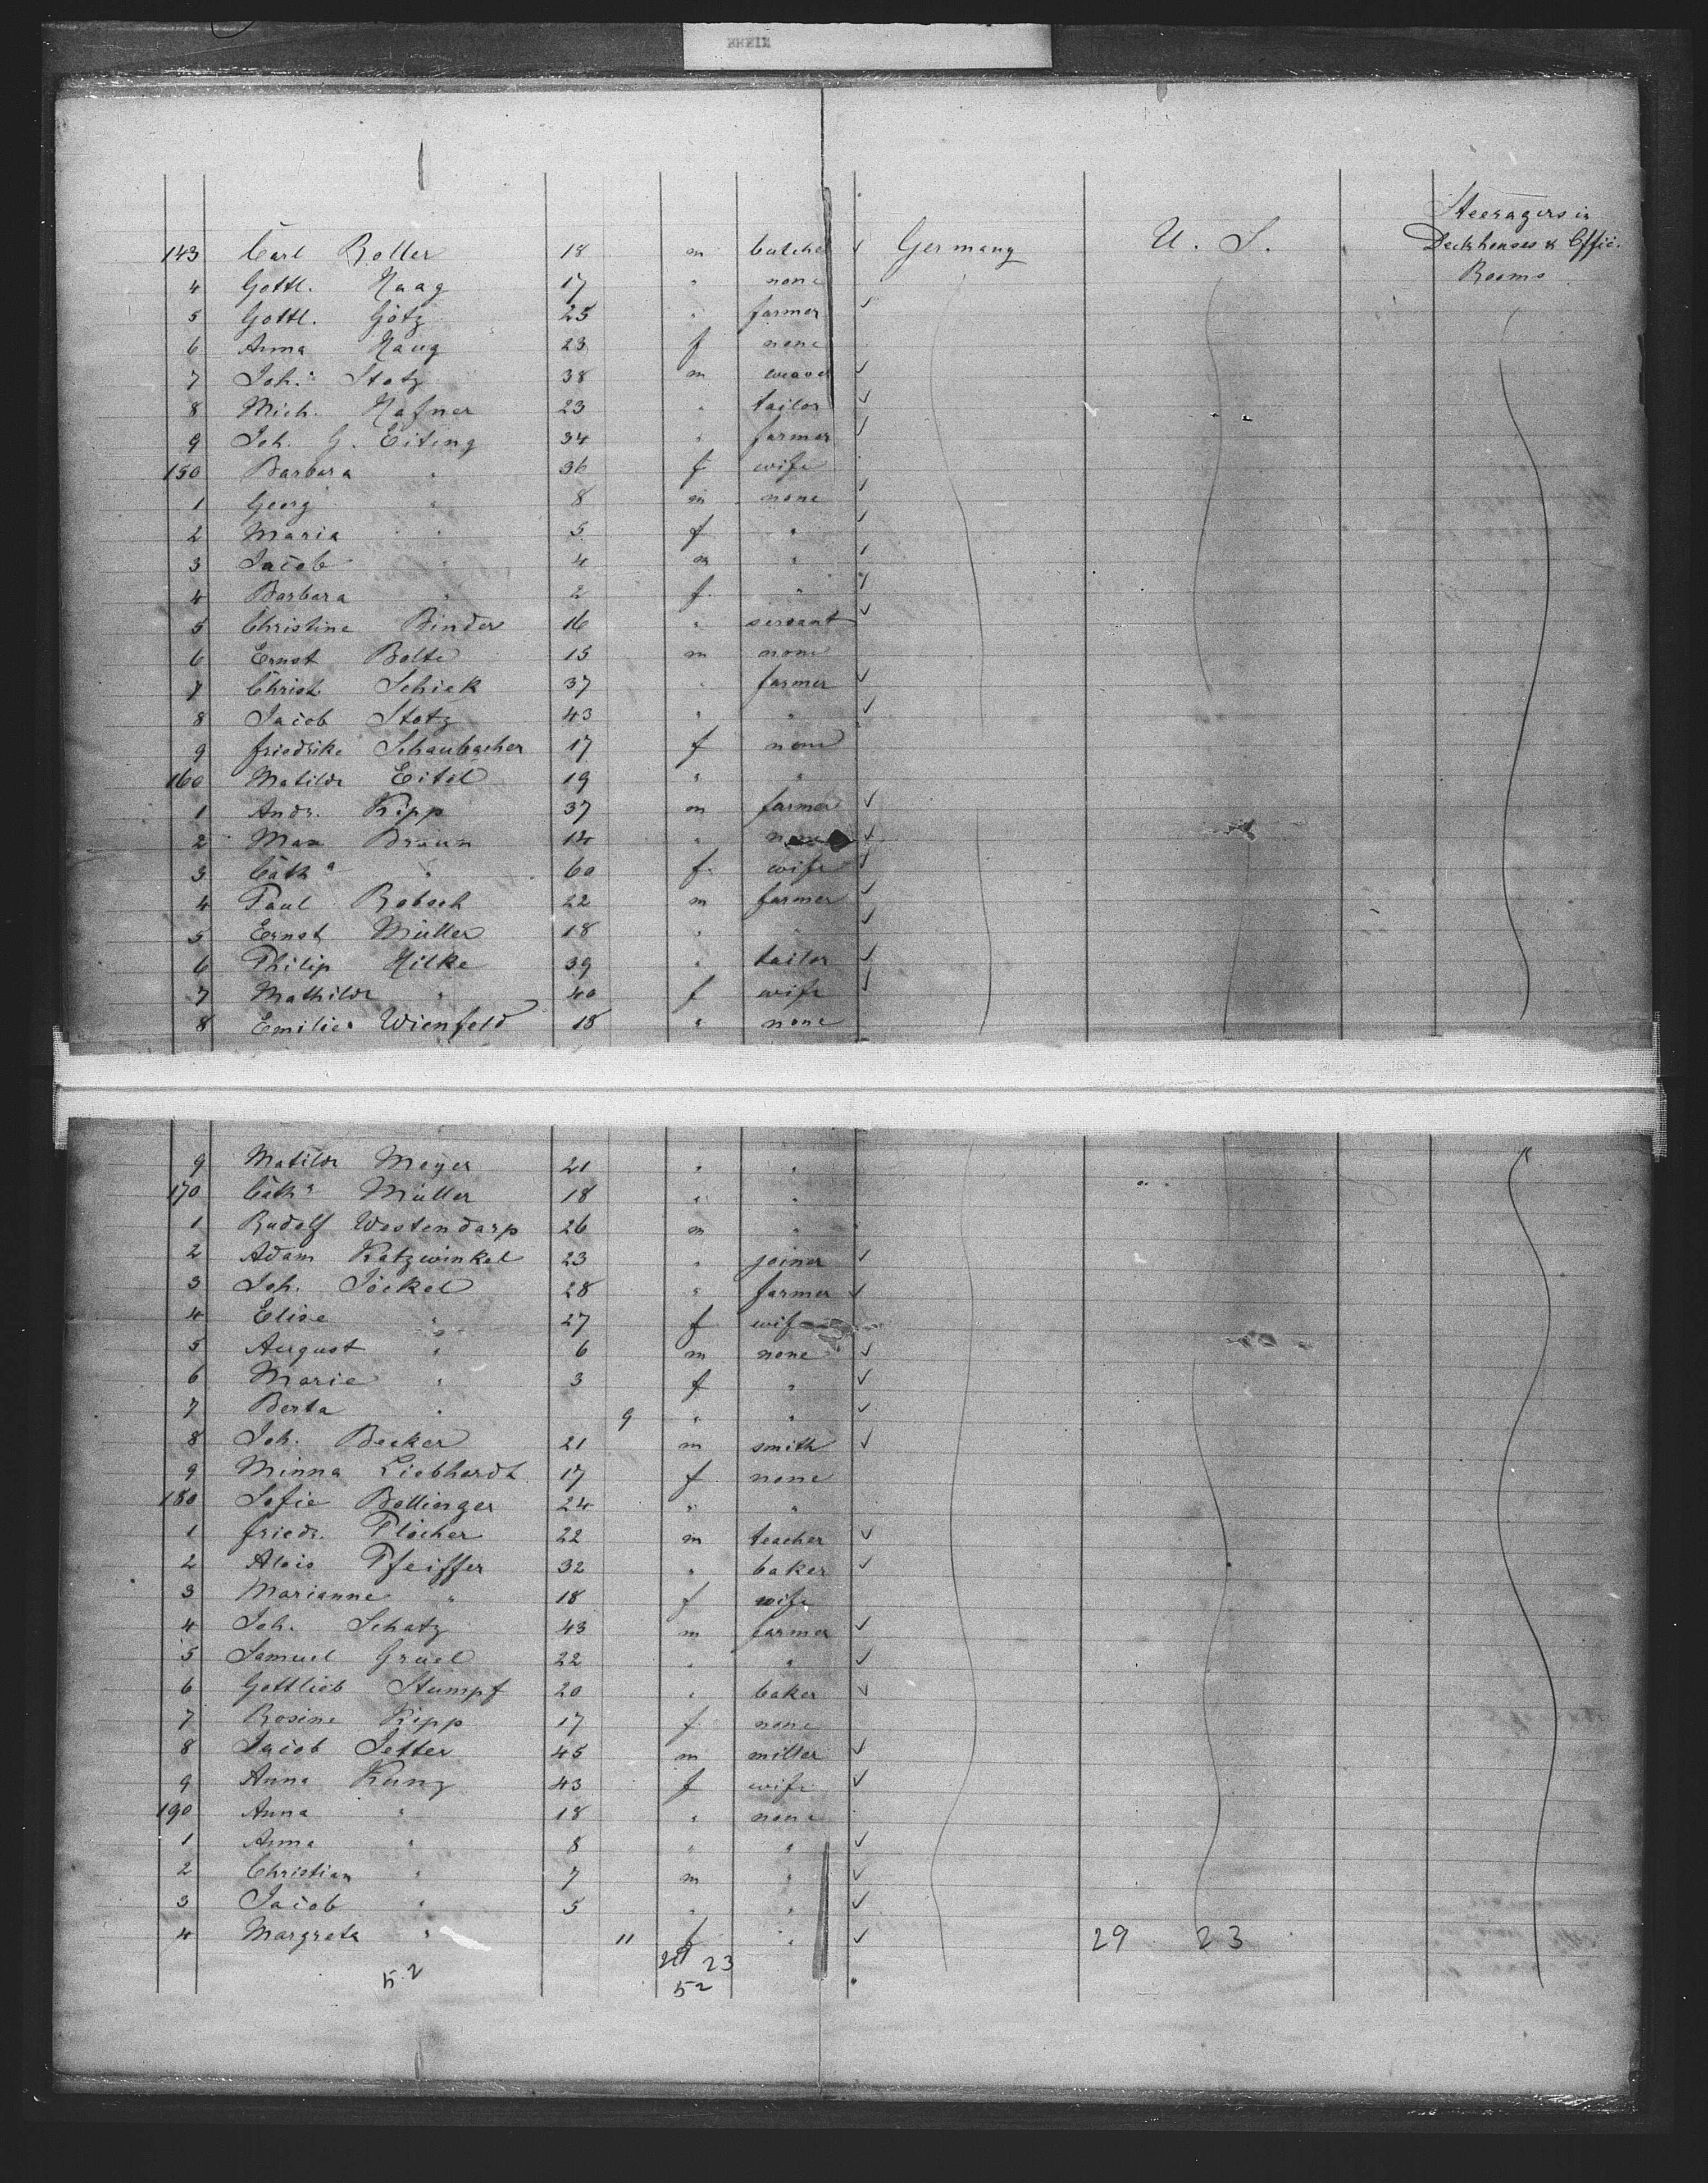 Steeragers in
143 Carl Roller 18 m butcher ✓ Germany U. S. Deckhouses & Offic.
4 Gottl. Haag 17 " none Rooms
5 Gottl. Götz 25 " farmer ✓
6 Anna Haug 23 f none
7 Joh.s Stotz 38 m weaver ✓
8 Mich. Hafner 23 " tailor ✓
9 Joh. G. Eiting 34 " farmer ✓
150 Barbara " 36 f wife
1 Georg " 8 m none ✓
2 Maria " 5 f " ✓
3 Jacob " 4 m " ✓
4 Barbara " 2 f " ✓
5 Christine Binder 16 " servant ✓
6 Ernst Bolte 15 m none
7 Christ. Schick 37 " farmer ✓
8 Jacob Stotz 43 " " ✓
9 Friedrike Schaubacher 17 f none
160 Matilde Eitel 19 " "
1 Andr. Kipp 37 m farmer ✓
2 Max Braun 14 " none ✓
3 Cath.a " 60 f wife ✓
4 Paul Robsch 22 m farmer ✓
5 Ernst Müller 18 " " ✓
6 Philip Hilke 39 " tailor ✓
7 Mathilde " 40 f wife ✓
8 Emilie Wienfeld 18 " none
9 Matilde Meyer 21 " "
170 Cath.a Müller 18 " "
1 Rudolf Westendarp 26 m "
2 Adam Katzwinkel 23 " joiner ✓
3 Joh. Jöckel 28 " farmer ✓
4 Elise " 27 f wife
5 August " 6 m none ✓
6 Marie " 3 f " ✓
7 Berta " 9 " " ✓
8 Joh. Becker 21 m smith ✓
9 Minna Liebhardt 17 f none
180 Sofie Bollinger 24 " "
1 Friedr. Plocher 22 m teacher ✓
2 Alois Pfeiffer 32 " baker ✓
3 Marianne " 18 f wife
4 Joh. Schatz 43 m farmer ✓
5 Samuel Gruel 22 " " ✓
6 Gottlieb Stumpf 20 " baker ✓
7 Rosine Kipp 17 f none
8 Jacob Jetter 45 m miller ✓
9 Anna Kunz 43 f wife ✓
190 Anna " 18 " none
1 Anna " 8 " " ✓
2 Christian " 7 m " ✓
3 Jacob " 5 " " ✓
4 Margreta " 11 f " ✓ 29 23
52 29 23
52